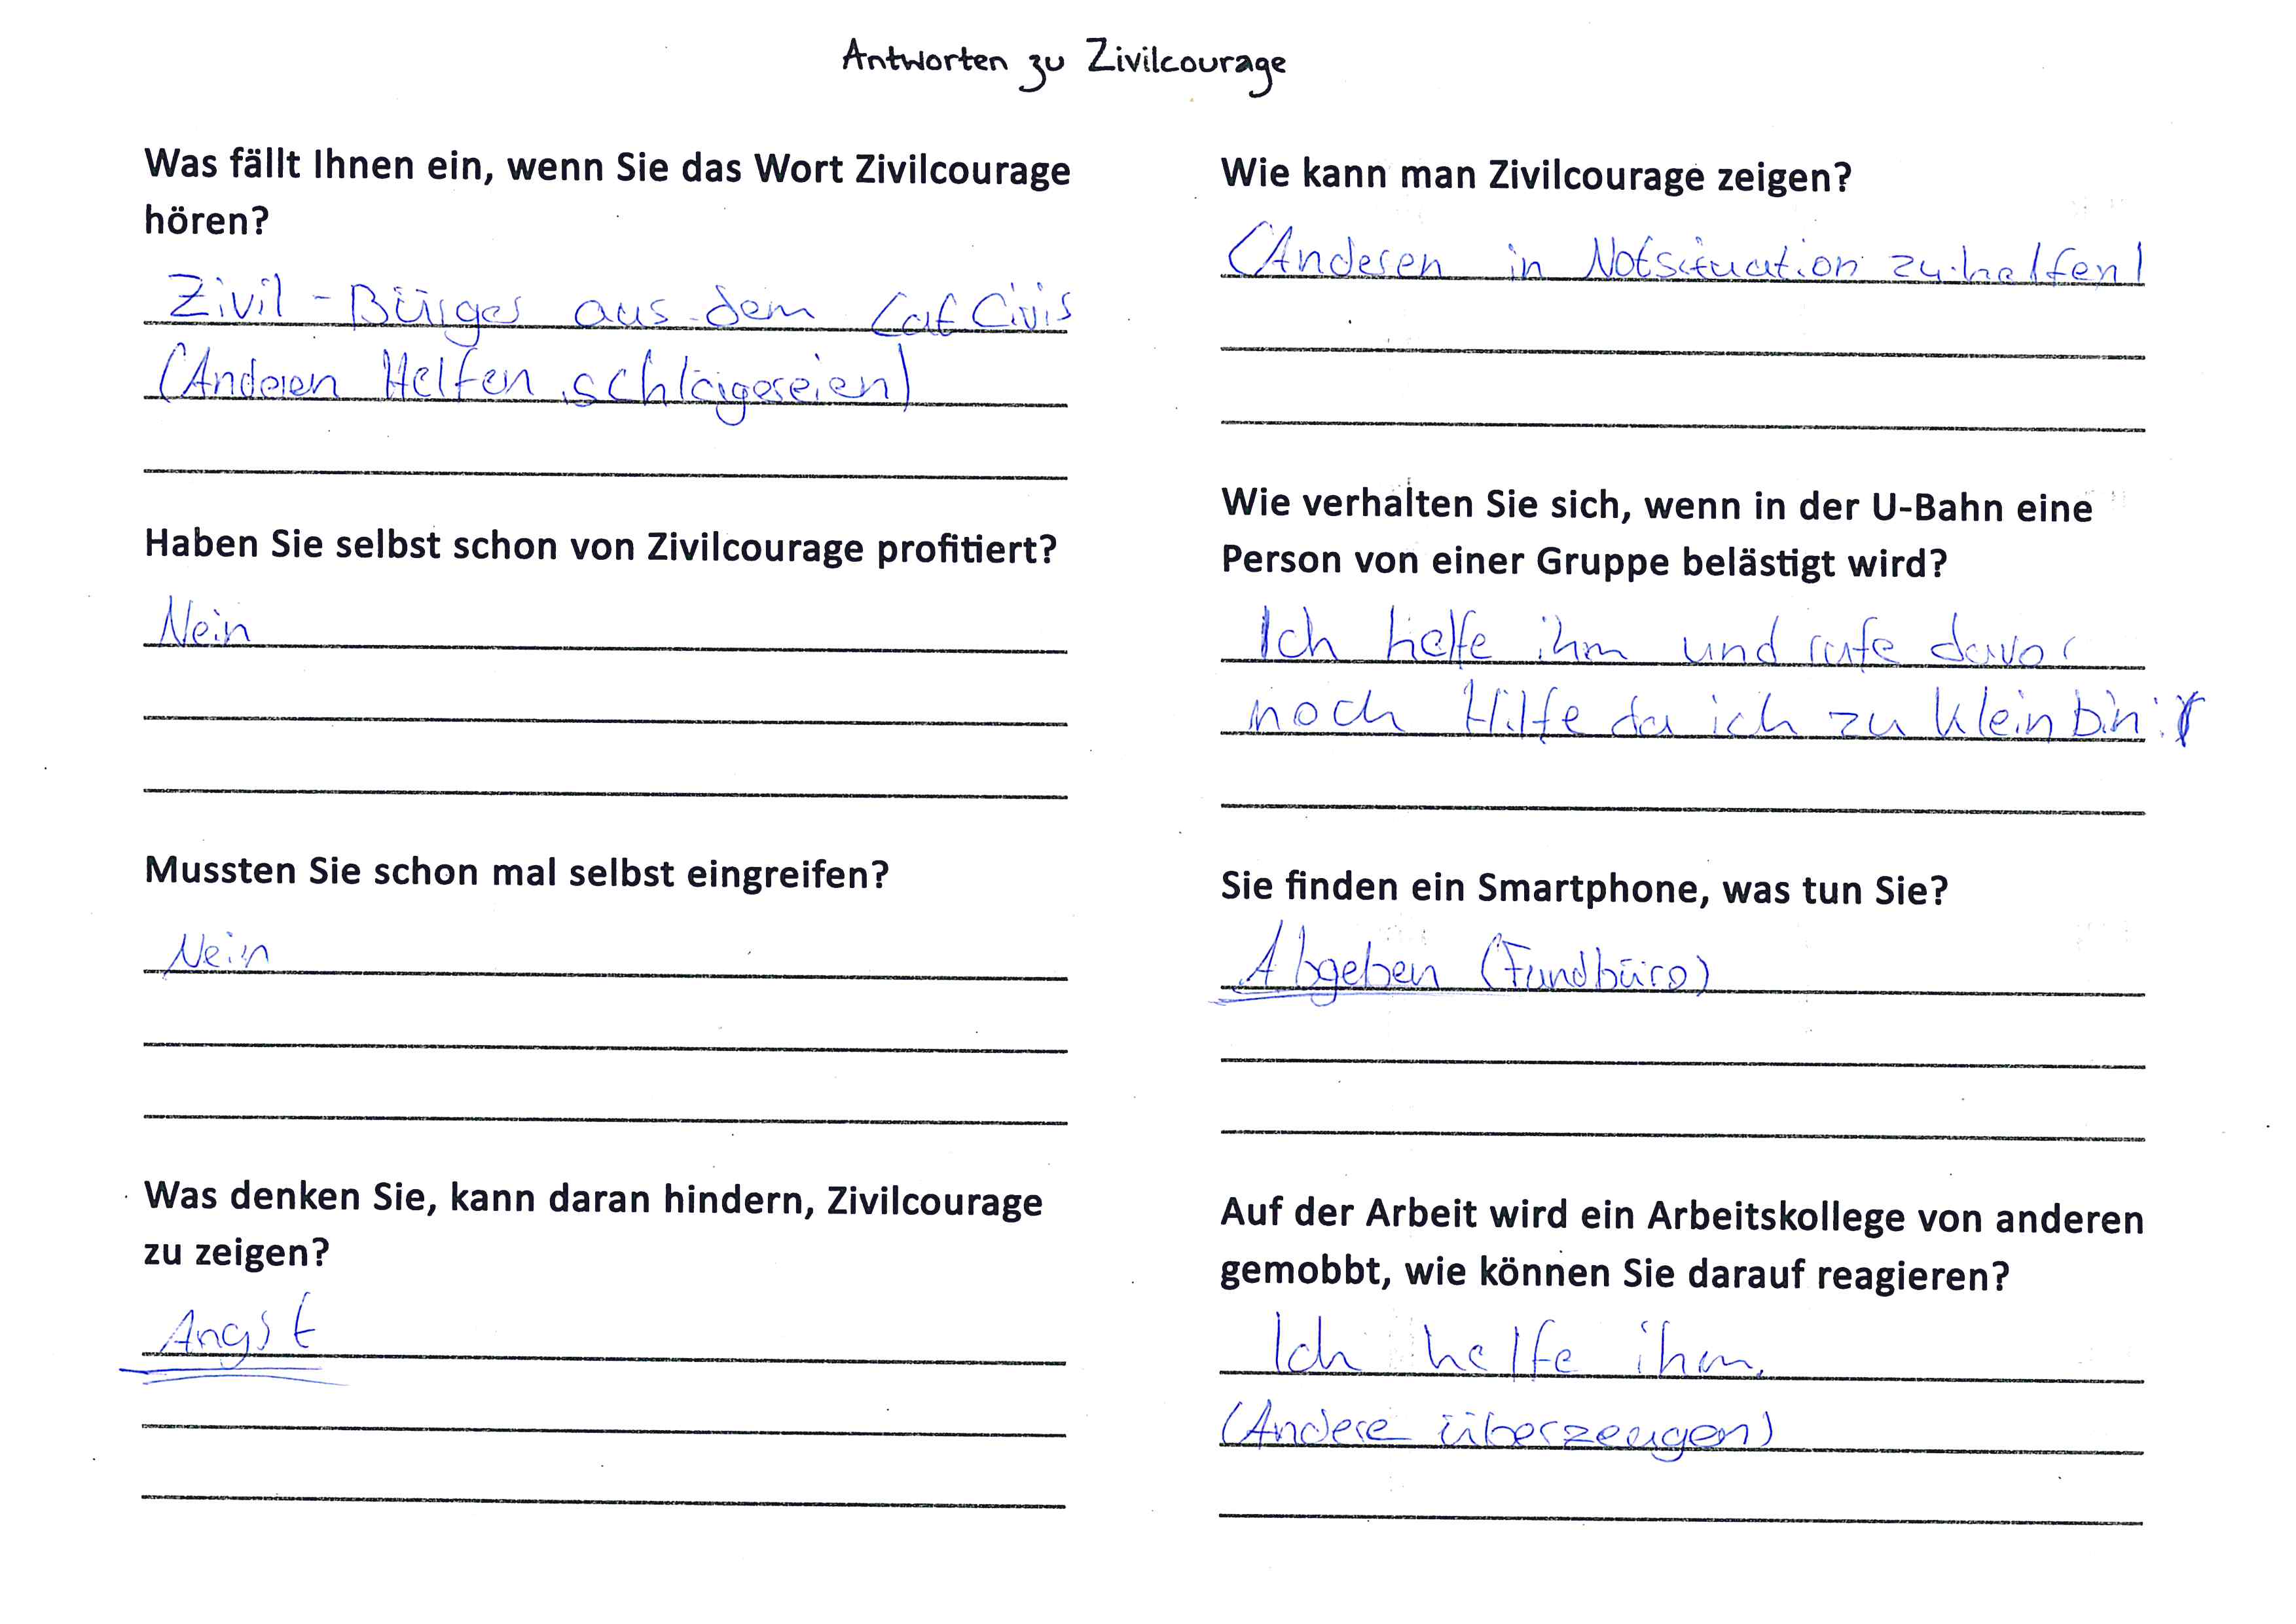 Antworten zu Zivilcourage
Was fällt Ihnen ein, wenn Sie das Wort Zivilcourage
hören?
Zivil - Bürger aus dem Civis
(Anderen Helfen, schlägereien)
Haben Sie selbst schon von Zivilcourage profitiert?
Nein
Mussten Sie schon mal selbst eingreifen?
Nein
Was denken Sie, kann daran hindern, Zivilcourage
zu zeigen?
Angst
Wie kann man Zivilcourage zeigen?
(Anderen in Notsituation zu helfen)
Wie verhalten Sie sich, wenn in der U-Bahn eine
Person von einer Gruppe belästigt wird?
Ich helfe ihm und rufe davor
noch Hilfe da ich zu klein bin
Sie finden ein Smartphone, was tun Sie?
Abgeben (Fundbüro)
Auf der Arbeit wird ein Arbeitskollege von anderen
gemobbt, wie können Sie darauf reagieren?
Ich helfe ihm.
(Andere überzeugen)